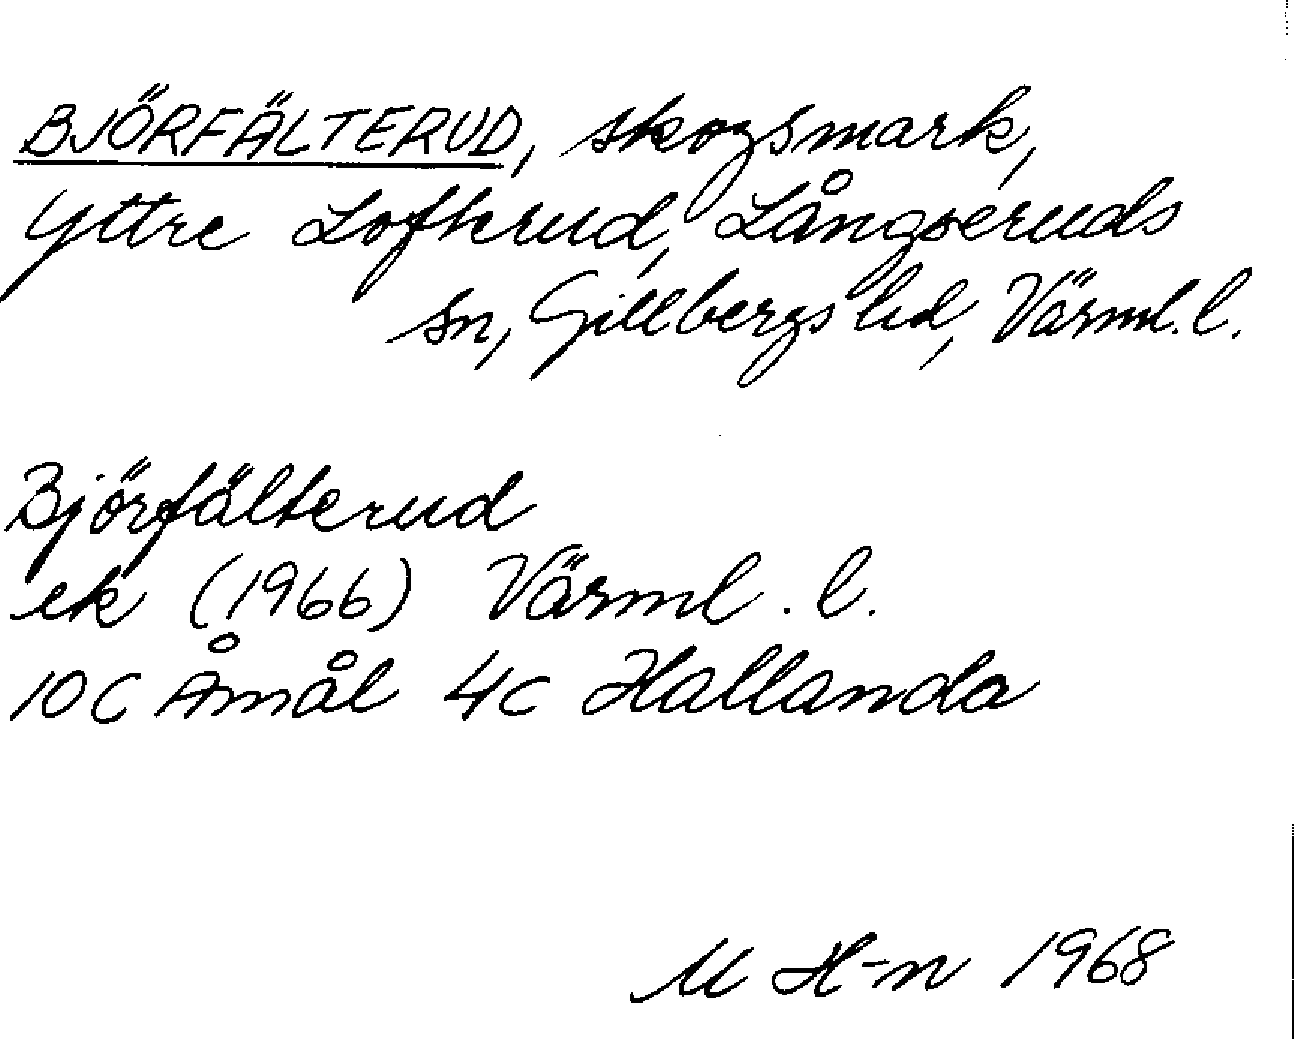 BJÖRFÄLTERUD, skogsmark,
Yttre Lofterud, Långseruds
sn, Gillbergs hd, Värml. l.
Björfälterud
ek (1966) Värml. l.
10C Åmål 4c Hallanda
M H-n 1968